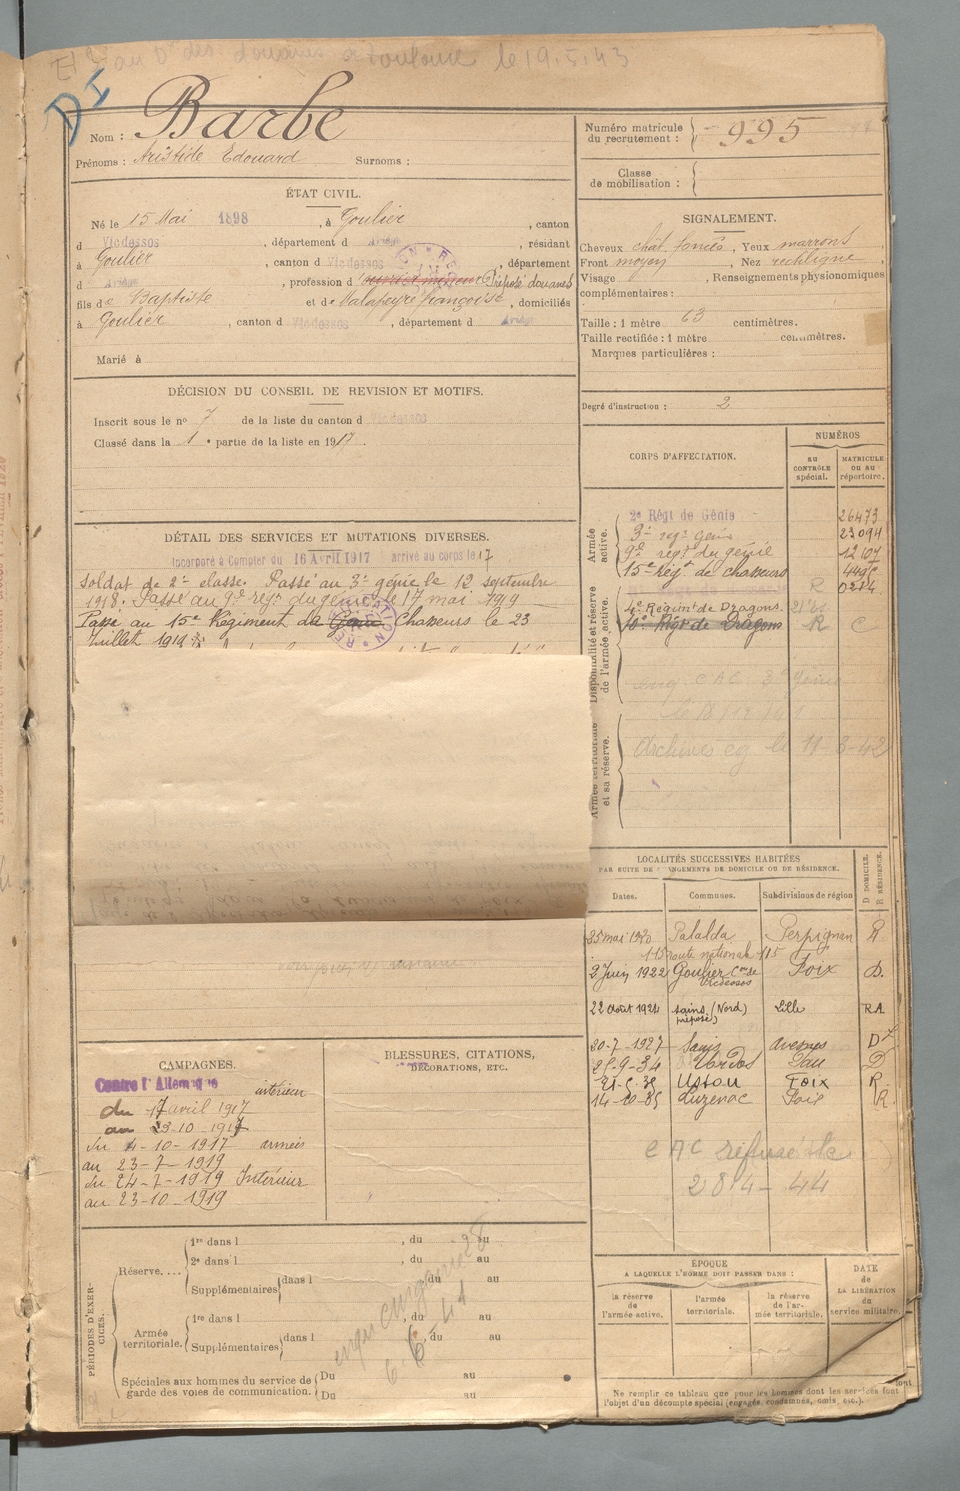 au des douanes Toulouse le 19.5.43
DI
Nom : Barbe
Prénoms : Aristide Edouard Surnoms :
Numéro matricule du recrutement : 995
Classe de mobilisation :
ÉTAT CIVIL.
Né le 15 Mai 1898, à Goulier, canton
d Vicdessos, département d Ariège, résidant
à Goulier, canton d Vicdessos, département
d Ariège, profession d' ouvrier mineur Préposé douanes
fils de Baptiste et de Dalapeyre françoise, domiciliés
à Goulier, canton d Vicdessos, département d Ariège
Marié à
SIGNALEMENT.
Cheveux chât. foncés, Yeux marrons
Front moyen, Nez rectiligne
Visage , Renseignements physionomiques
complémentaires :
Taille : 1 mètre 63 centimètres.
Taille rectifiée : 1 mètre centimètres.
Marques particulières :
Degré d'instruction : 2
DÉCISION DU CONSEIL DE REVISION ET MOTIFS.
Inscrit sous le nº 7 de la liste du canton d Vicdessos
Classé dans la 1e partie de la liste en 1917.
CORPS D'AFFECTATION.
NUMÉROS
AU CONTRÔLE spécial.
MATRICULE OU AU répertoire.
Armée active.
2e Régt de Génie 26473
3e régt génie 23094
9e régt du génie 12107
15e Régt de chasseurs
Disponibilité et réserve de l'armée active.
R
4e Régimt de Dragons.
10e Régt de Dragons R C
CAC 3e Génie
Archives cg le 11-3-42
Armée territoriale et sa réserve.
DÉTAIL DES SERVICES ET MUTATIONS DIVERSES.
Incorporé à Compter du 16 Avril 1917 arrivé au corps le 17
Soldat de 2e classe. Passé au 3e génie le 12 septembre
1918. Passé au 9e régt du génie le 17 mai 1919
Passé au 15e Régiment de Génie Chasseurs le 23
Juillet 1919
LOCALITÉS SUCCESSIVES HABITÉES
PAR SUITE DE CHANGEMENTS DE DOMICILE OU DE RÉSIDENCE.
Dates. Communes. Subdivisions de région D DOMICILE. R RÉSIDENCE.
25 mai 1920 Palalda Perpignan R
115 route nationale 115
2 Juin 1922 Goulier Cne de Vicdessos Foix D.
22 Août 1924 Sains (Nord) préposé) Lille RA
20-7-1927 Sains Avesnes D
25-9-34 Urdos Pau D
21-5-35 Ustou Foix R.
14-10-35 Luzenac Foix R.
CAC refusé le
28-4-44
CAMPAGNES.
Contre l'Allemagne intérieur
du 17 avril 1917
au 3-10-1917
du 4-10-1917 armées
au 23-7-1919
du 24-7-1919 Intérieur
au 23-10-1919
BLESSURES, CITATIONS,
DÉCORATIONS, ETC.
PÉRIODES D'EXERCICES.
Réserve....
1re dans l , du au
2e dans l , du au
Supplémentaires dans l du au
Armée territoriale.
1re dans l , du au
Supplémentaires dans l , du au
Spéciales aux hommes du service de garde des voies de communication.
Du au
Du au
6 6 41
ÉPOQUE
A LAQUELLE L'HOMME DOIT PASSER DANS :
la réserve de l'armée active.
l'armée territoriale.
la réserve de l'armée territoriale.
DATE de LA LIBÉRATION du service militaire.
Ne remplir ce tableau que pour les hommes dont les services font
l'objet d'un décompte spécial (engagés, condamnés, omis, etc.).